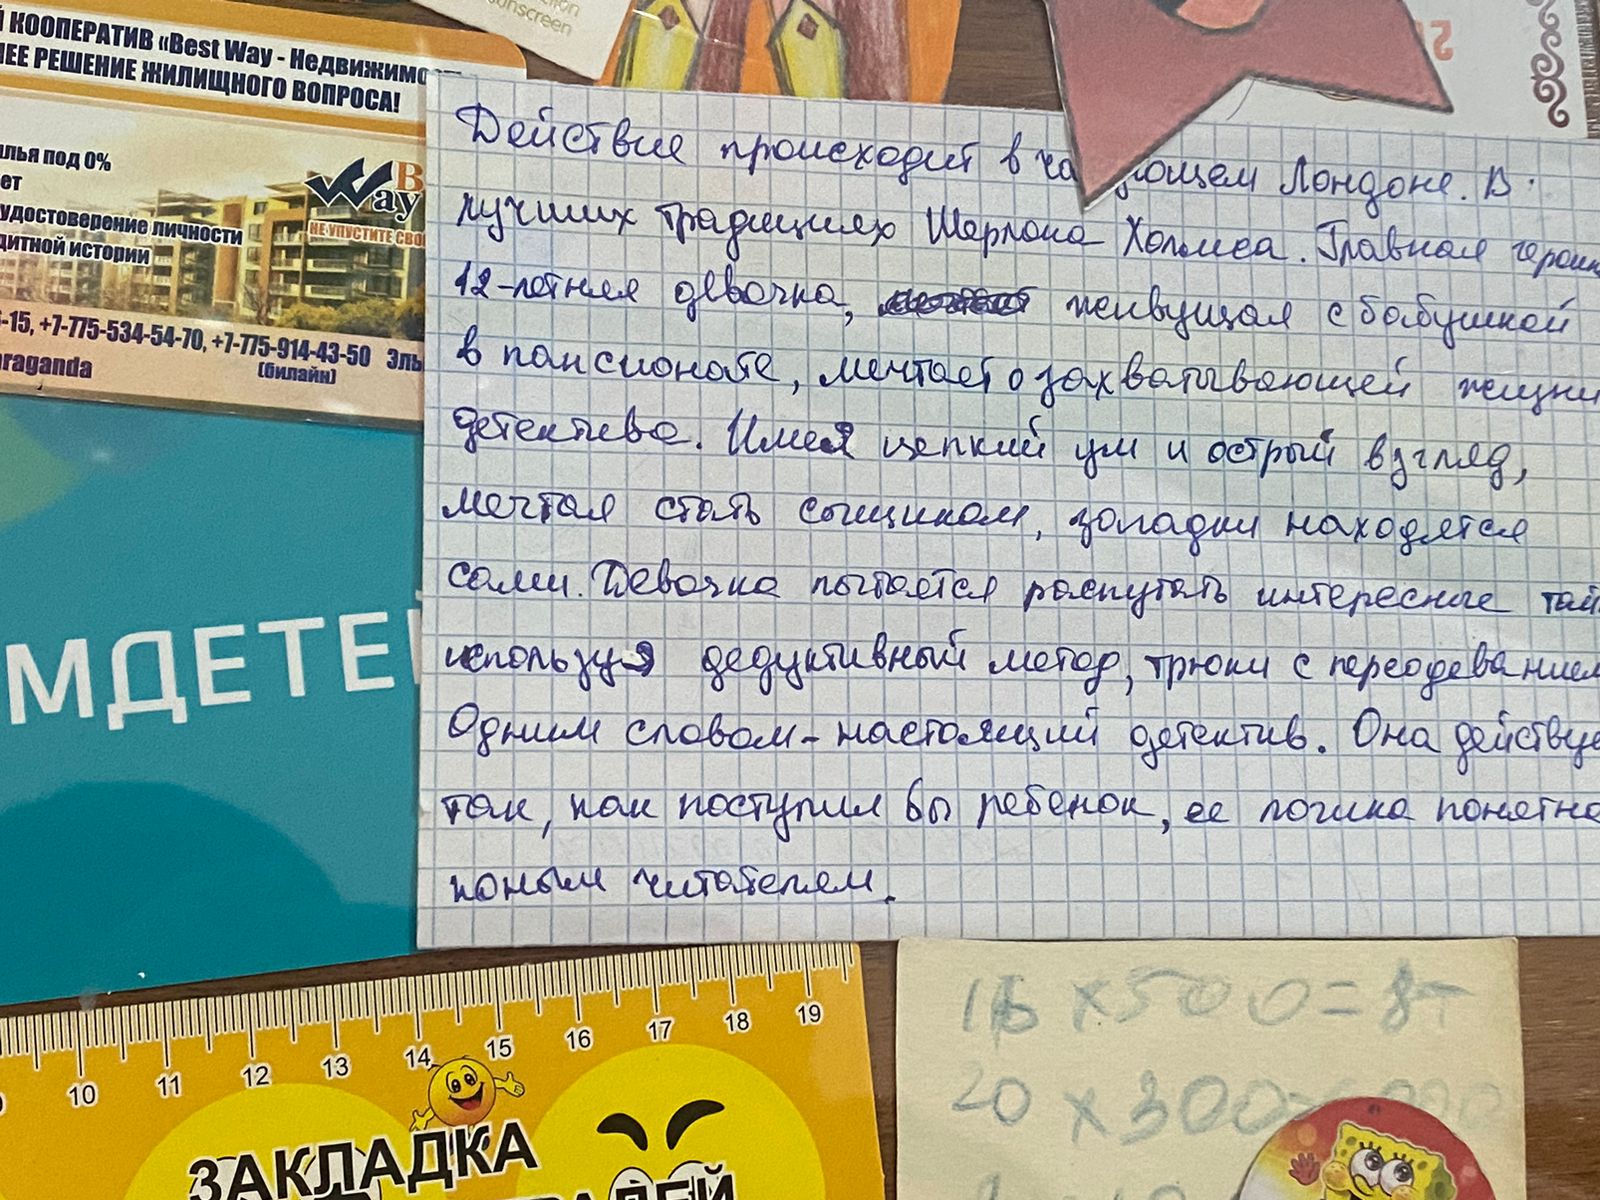 Й КООПЕРАТИВ «Best Way - Недвижимость
ЕЕ РЕШЕНИЕ ЖИЛИЩНОГО ВОПРОСА!
лья под 0%
ет
удостоверение личности
дитной истории
B
Way
НЕ УПУСТИТЕ СВО
-15, +7-775-534-54-70, +7-775-914-43-50 Эль
(билайн)
raganda
sunscreen
Действие происходит в ча ующем Лондоне. В
лучших традициях Шерлока Холмса. Главная героин
12-летняя девочка, живущая с бабушкой
в пансионате, мечтает о захватывающей жизни
детектива. Имея цепкий ум и острый взгляд,
мечтая стать сыщиком, загадки находятся
сами. Девочка пытается распутать интересные тай
используя дедуктивный метод, трюки с переодеванием
Одним словом - настоящий детектив. Она действуе
так, как поступил бы ребенок, ее логика понятна
юным читателям.
МДЕТЕЙ
10 11 12 13 14 15 16 17 18 19
ЗАКЛАДКА
16 x 500 = 8
20 x 300